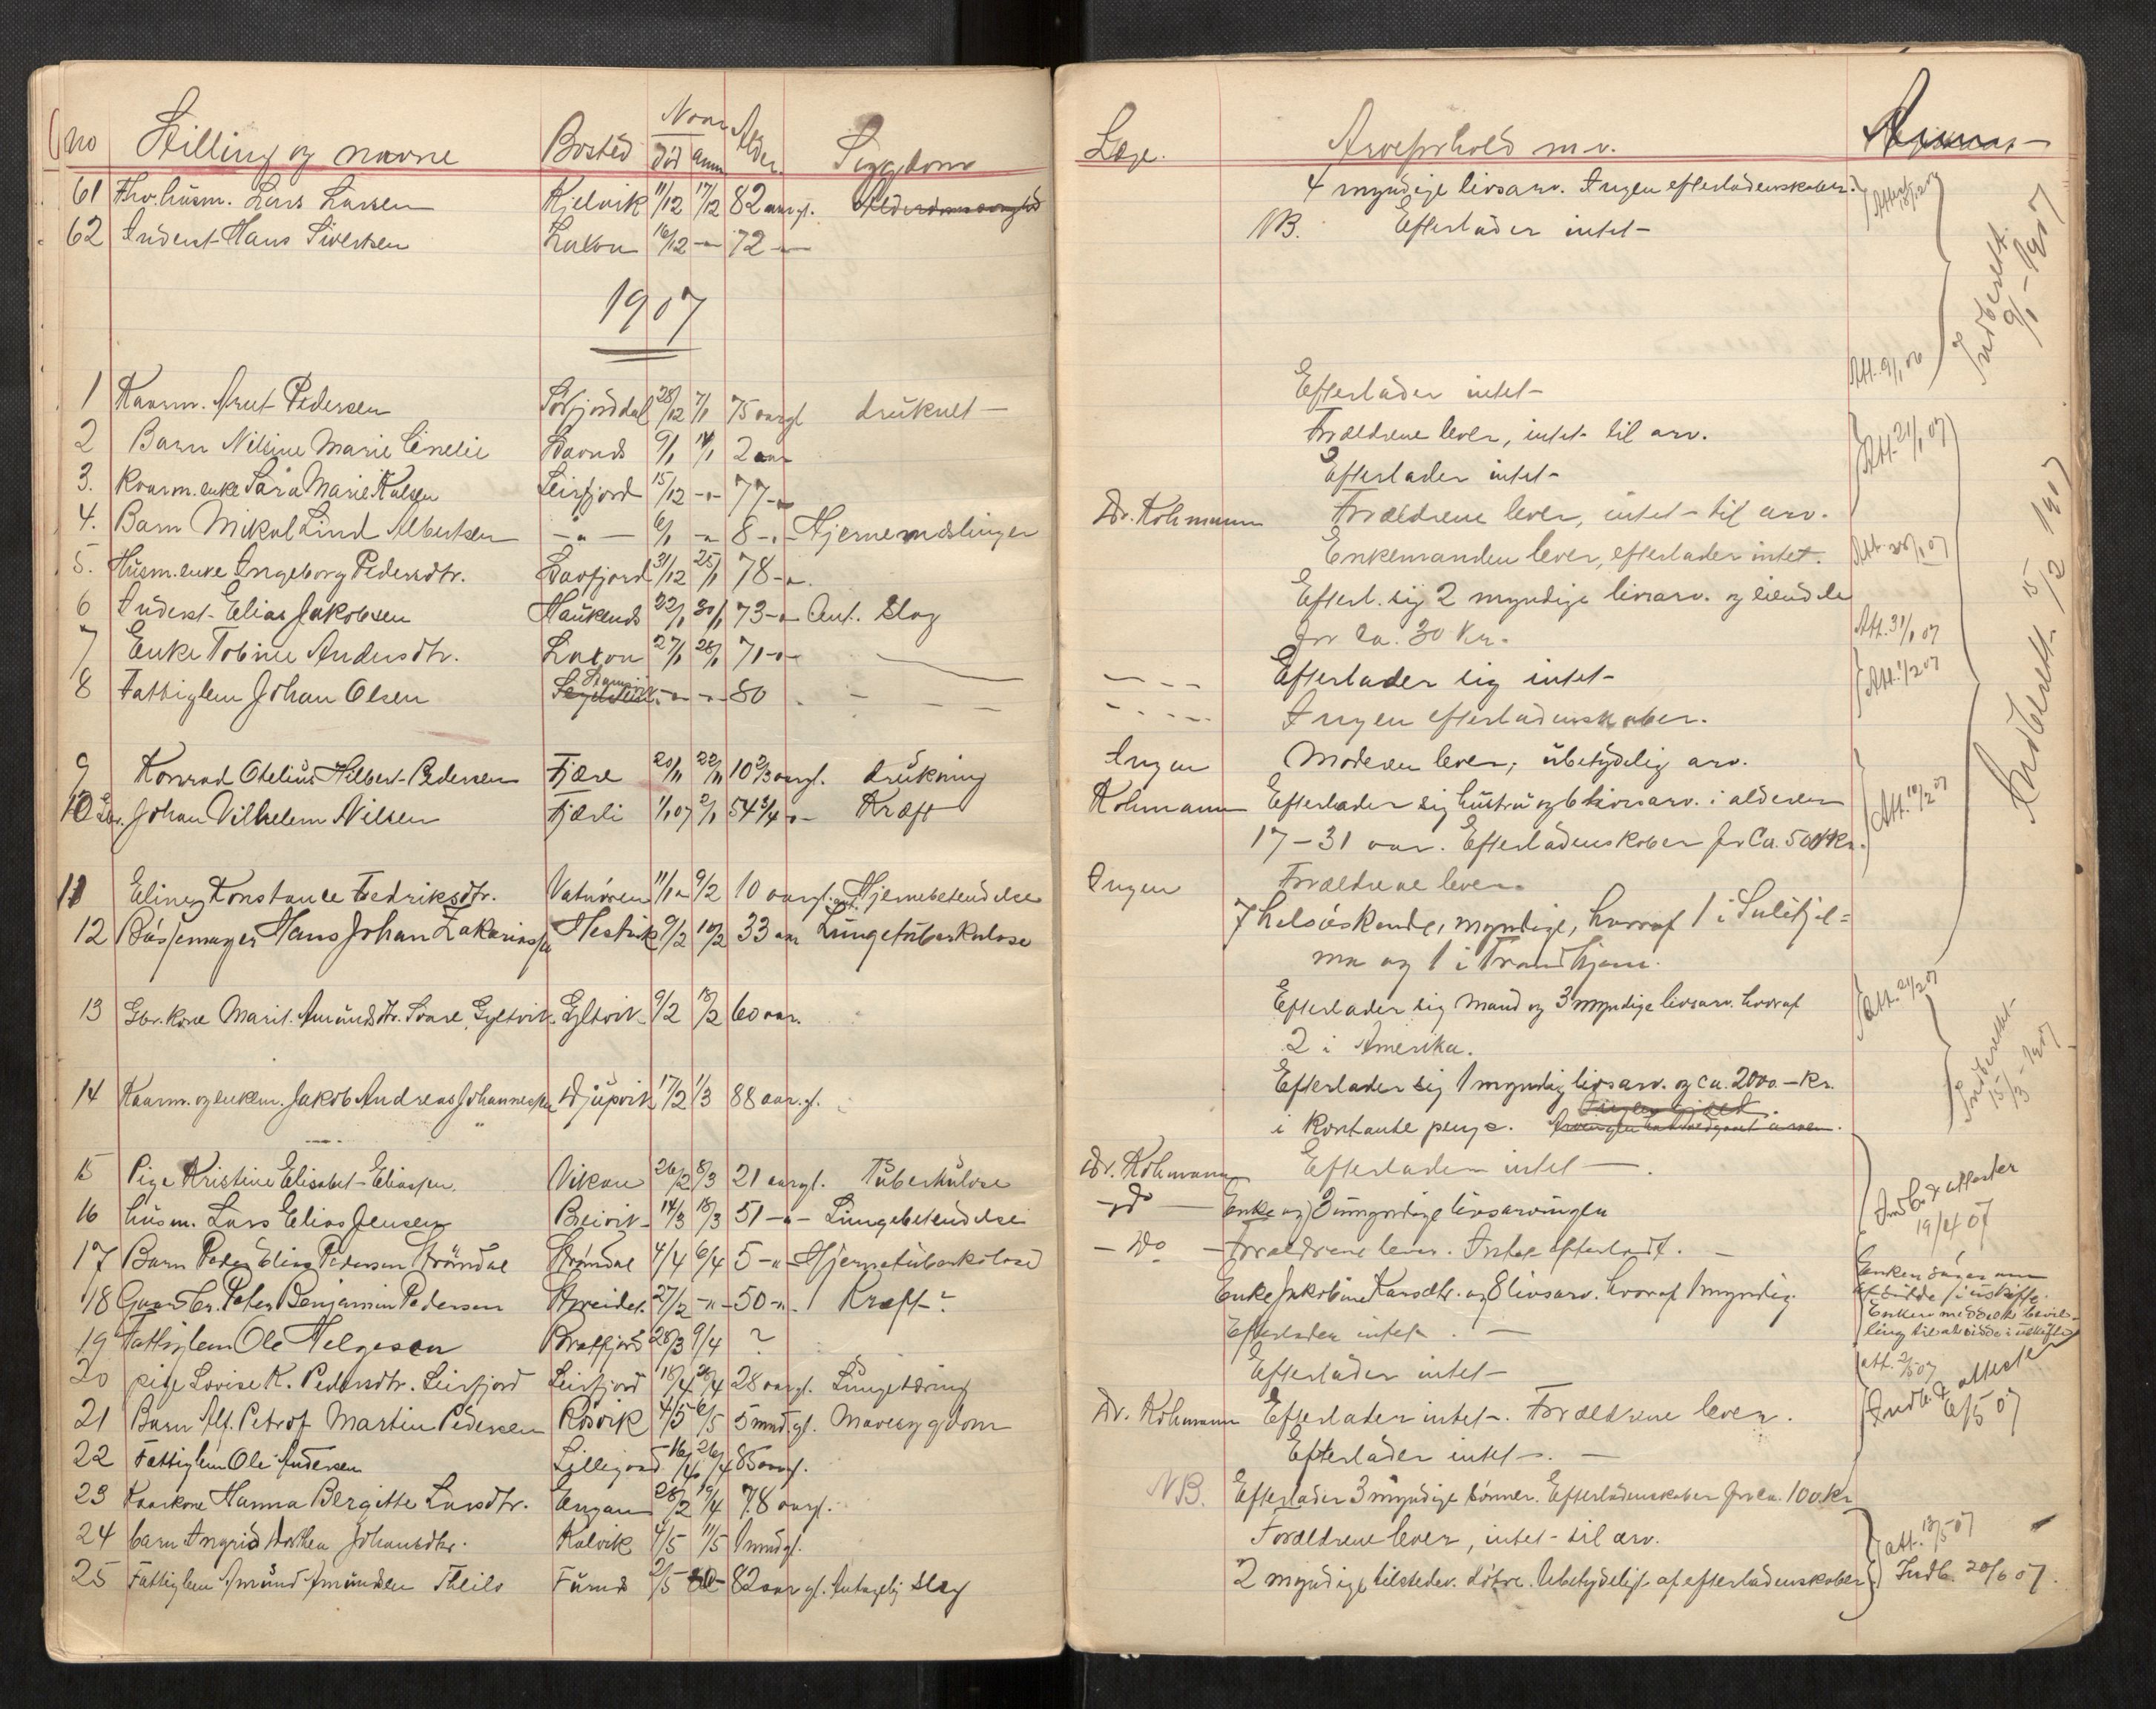 no Stilling og navne Bosted Naar død anm. Alder. Sygdom
61 Fhv. husm. Lars Larsen Kjelvik 11/12 17/12 82 aar gl. Alderdomssvaghed
62 Inderst Hans Sivertsen Laxon 16/12 -"- 72 -"-
1907
1 Kaarm. Arnt Pedersen Sørfjorddal 28/12 7/1 75 aargl. druknet -
2 Barn Nelsine Marie Cinelie 9/1 14/1 2 aar
3. Kaarm. enke Sara Marie Kalsen Leirfjord 15/12 -"- 77 -"-
4. Barn Mikal Lind Albertsen -"- 6/1 -"- 8 -"- Hjernemæslinger
5. Husm. enke Ingeborg Pedersdtr. 31/12 25/1 78 -"-
6 Inderst Elias Jakobsen Haukenes 22/1 30/1 73 -"- Ant. slag
7 Enke Tobine Andersdtr. Laxon 27/1 28/1 71 -"-
8 Fattiglem Johan Olsen -"- -"- 80
9 Konrad Otelius Hilbert Pedersen Fjære 20/11 22/11 10 2/3 aargl. drukning
10 Gbr. Johan Vilhelm Nilsen Fjærli 1/1 07 2/1 54 3/4 -"- Kræft
11 Eliney Konstance Fredriksdtr. Vatnøren 11/1 9/2 10 aargl. ant. Hjernebetendelse
12 Bøssemager Hans Johan Zakariassen Hestvik 9/2 10/2 33 aar Lungetuberkulose
13 Gbr. kone Marit Amundsdtr. Svare, Gyltvik Gyltvik 9/2 18/2 60 aar.
14 Kaarm. og enkem. Jakob Andreas Johannessen Djupvik 17/2 1/3 88 aar. gl.
15 Pige Kristine Elisabet Eliassen. Vikan 26/2 8/3 21 aargl. Tuberkulose
16 husm. Lars Elias Jensen Breivik 14/3 18/3 51 -"- Lungebetendelse
17 Barn Peder Elias Pedersen Strøndal Strøndal 4/4 6/4 5 -"- Hjernetuberkulose
18 Gaardbr. Peter Benjamin Pedersen 27/2 -"- 50 -"- Kræft?
19 Fattiglem Ole Helgesen 28/3 9/4 ?
20 pige Lovise K. Pedersdtr. Leirfjord Leirfjord 18/4 28/4 28 aargl. Lungetæring
21 Barn Alf. Petrof Martin Pedersen Røsvik 4/5 6/5 5 mnd. gl. Mavesygdom
22 Fattiglem Ole Andersen 16/4 26/4 85 aargl.
23 Kaarkone Hanna Bergitte Larsdtr. Engan 28/2 19/4 78 aargl.
24 barn Ingrid Dorthea Johansdtr. Kalvik 4/5 11/5 1 mndgl.
25 Fattiglem Amund Amundsen Theils Furnes 2/5 82 aar gl. Antagelig slag
Læge. Arveforhold m.v.
4 myndige livsarv. Ingen efterladenskaber.
NB. Efterlader intet -
Indberett. 9/1 - 1907
Efterlader intet - Att. 9/1 06
Forældrene lever, intet til arv. Att. 21/1 07
Efterlader intet -
Dr. Kohmann Forældrene lever, intet - til arv.
Enkemanden lever, efterlader intet. Att. 28/1 07
Efterl. sig 2 myndige livsarv. og eiendele
for ca. 30 Kr. Att. 31/1 07
Efterlader sig intet - Att. 1/2 07
Ingen efterladenskaber.
Indberett. 15/2 1907
Ingen Moderen lever, ubetydelig arv.
Kohmann Efterlader sig hustru og 6 livsarv. i alderen Att. 10/2 07
17 - 31 aar. Efterladenskaber for Ca. 500 Kr.
Ingen Forældrene lever.
7 helsøskende, myndige, hvoraf 1 i Sulitjel=
ma og 1 i Trondhjem.
Efterlader sig mand og 3 myndige livsarv. hvoraf Att. 21/2 07
2 i Amerika.
Indberettet 15/3 - 1907
Efterlader sig 1 myndig livsarv. og ca. 2000.- Kr.
i kontante penge.
Dr. Kohmann Efterlader intet - .
- do - Enke og 3 umyndige livsarvinger Indb. & attester 19/4 07
- Do - Forældrene lever. Intet efterladt. -
Enke Jakobine Larsdtr. og 8 livsarv. hvoraf 1 myndig.
Enken søger om at sidde i uskifte.
Enken meddelt bevil-
ling til at sidde i uskifte
Efterlader intet. -
Efterlader intet - att. 2/5 07
Dr. Kohmann Efterlader intet -. Forældrene lever. Indb. & attester 6/5 07
Efterlader intet -. -
NB. Efterlader 3 myndige sønner. Efterladenskaber for ca. 100 Kr
Forældrene lever, intet - til arv. att. 13/5 07
2 myndige tilstedev. døtre. Ubetydeligt af efterladenskaber. Indb. 20/6 07.